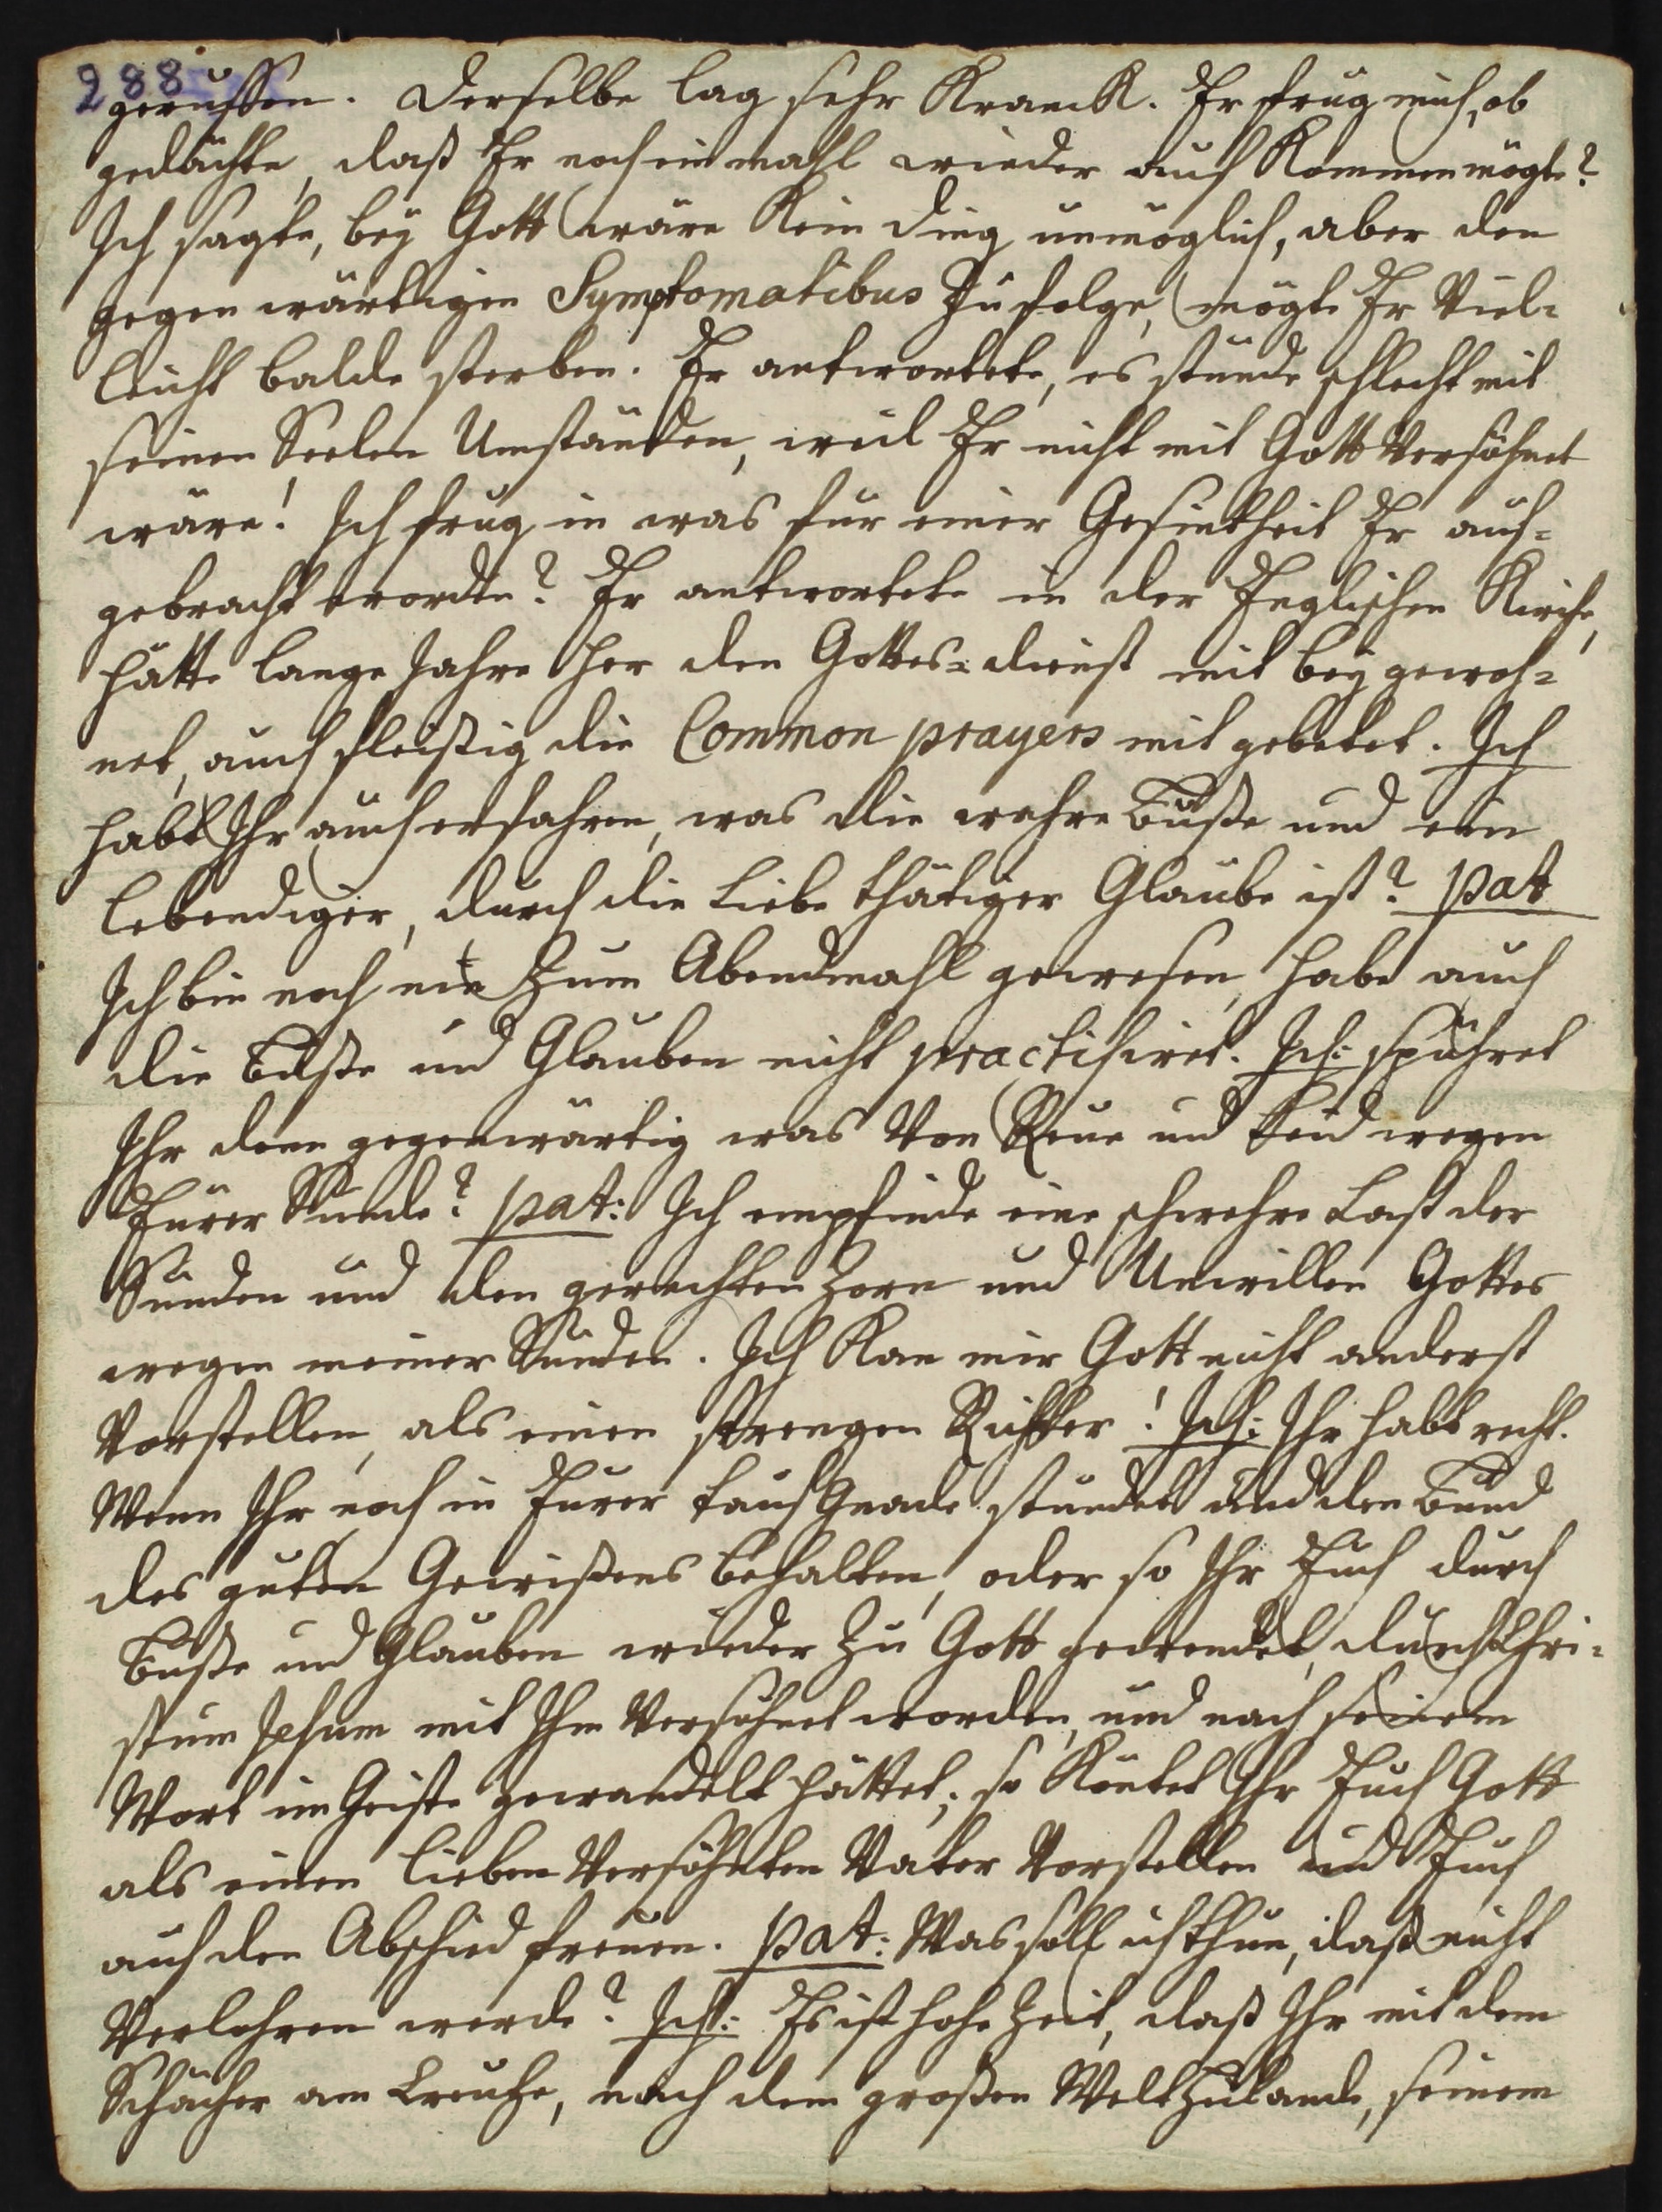 288
geruffen. Derselbe lag sehr Kranck. Er frug mich, ob
gedächte, daß Er noch ein mahl wieder auf Kommen mögte?
Ich sagte, bey Gott wäre Kein Ding unmöglich, aber den
gegenwärtigen Symptomatibus Zufolge, mögte Er Viel=
leicht balde sterben. Er antwortete, es stünde schlecht mit
seinen Seelen Umständen, weil Er nicht mit Gott Versöhnet
wäre! Ich frug in was für einer Gesintheit Er auf=
gebracht worden? Er antwortete in der Englischen Kirche,
hätte lange Jahre her den Gottes=dienst mit bey gewoh=
net, auch fleißig die Common prayers mit gebetet. Ich
habt Ihr auch erfahren, was die wahre Buße und ein
lebendiger, durch die Liebe thätiger Glaube ist? pat
Ich bin noch nie Zum Abendmahl gewesen, habe auch
die Buße und Glauben nicht practisiret. Ich: spühret
Ihr denn gegenwärtig was Von Reue und Leid wegen
Eurer Sünde? pat: Ich empfinde eine schwehre Last der
Sünden und den gerechten Zorn und Unwillen Gottes
wegen meiner Sünden. Ich Kan mir Gott nicht anderst
Vorstellen, als einen strengen Richter! Ich: Ihr habt recht.
Wenn Ihr noch in Eurer Tauf Gnade stündet und den Bund
des guten Gewißens behalten, oder so Ihr Euch durch
Buße und Glauben wieder Zu Gott gewendet, durch Chri=
stum Jesum mit Ihm Versöhnet worden, und nach seinem
Wort im Geiste gewandelt hättet; so Köntet Ihr Euch Gott
als einen lieben Versöhnten Vater Vorstellen und Euch
auf den Abschied freuen. pat: Was soll ich thun, daß nicht
Verlohren werde? Ich: Es ist hohe Zeit, daß Ihr mit dem
Schächer am Creutze, nach dem großen Welt Heilande, seinem